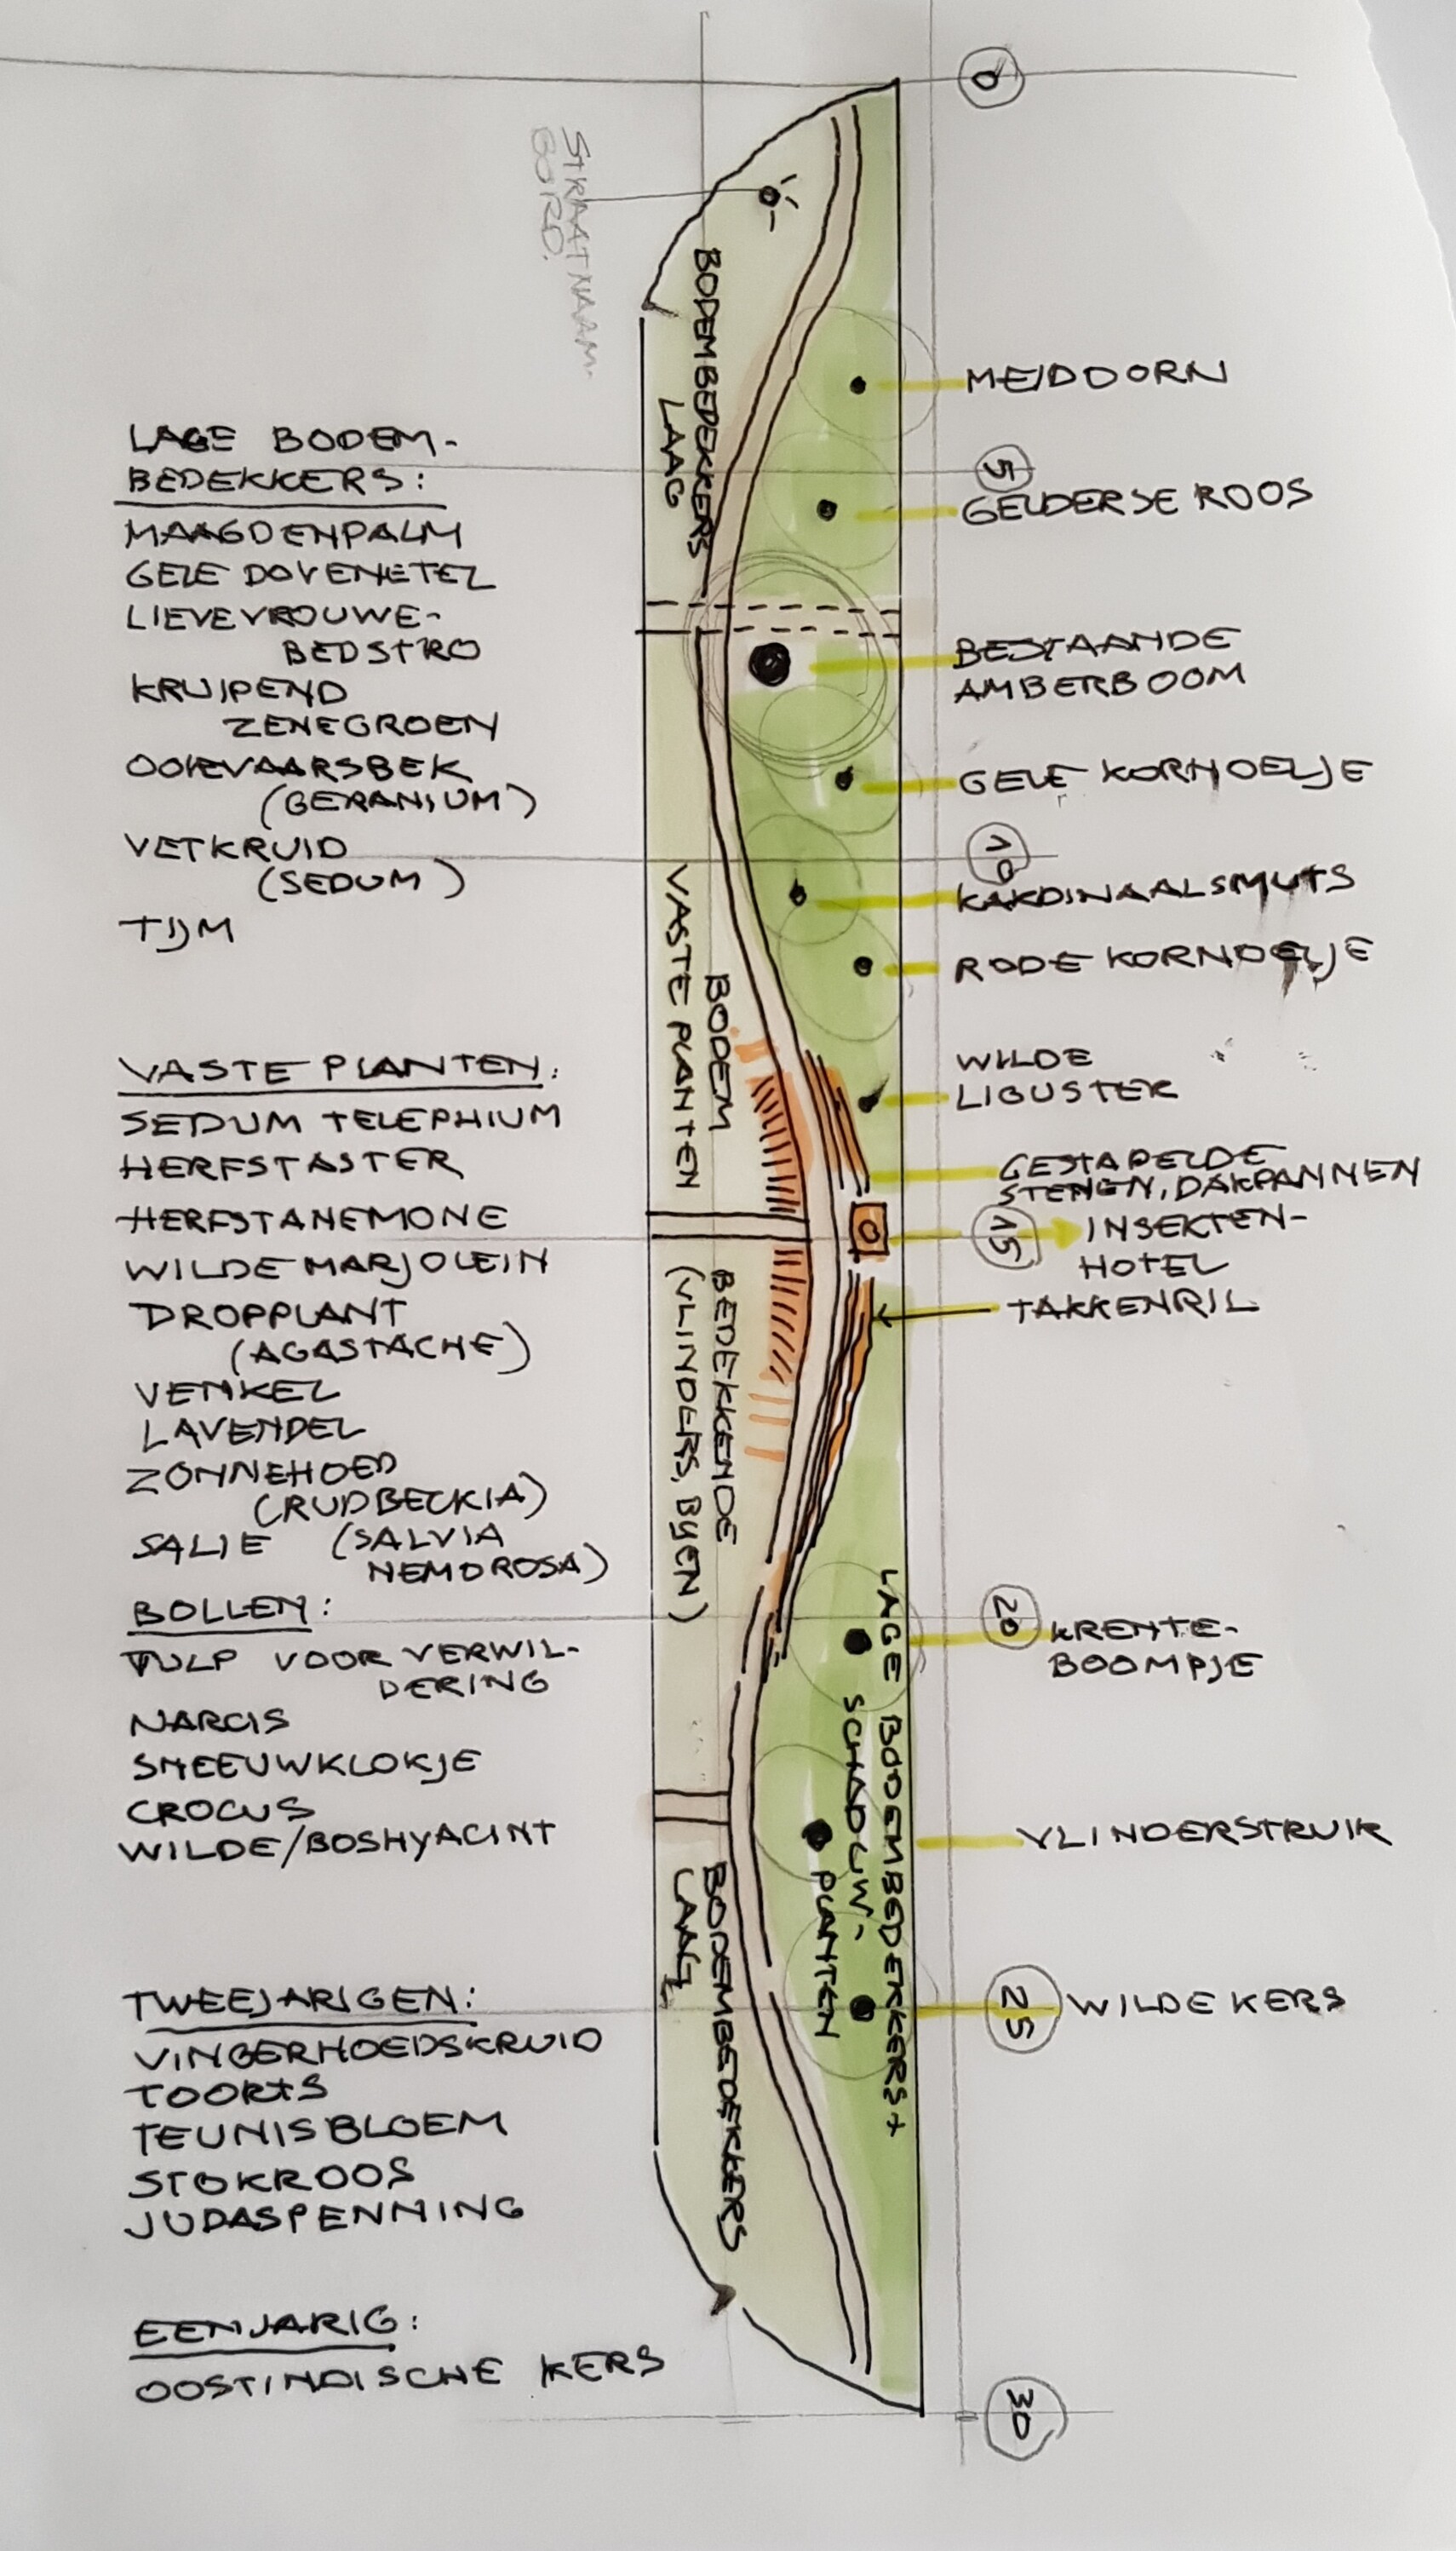 0
STRAATNAAM
BORD.
BODEMBEDEKKERS
LAAG
MEIDOORN
5
GELDERSE ROOS
BESTAANDE
AMBERBOOM
GELE KORNOELJE
10
KARDINAALSMUTS
RODE KORNOELJE
WILDE
LIGUSTER
GESTAPELDE
STENEN, DAKPANNEN
15
INSEKTEN-
HOTEL
TAKKENRIL
20
KRENTE-
BOOMPJE
VLINDERSTRUIK
25
WILDE KERS
30
BODEM
BEDEKKENDE
VASTE PLANTEN
(VLINDERS, BIJEN)
LAGE BODEMBEDEKKERS +
SCHADUW-
PLANTEN
BODEMBEDEKKERS
LAAG
LAGE BODEM-
BEDEKKERS:
MAAGDENPALM
GELE DOVENETEL
LIEVEVROUWE-
BEDSTRO
KRUIPEND
ZENEGROEN
OOIEVAARSBEK
(GERANIUM)
VETKRUID
(SEDUM)
TIJM
VASTE PLANTEN:
SEDUM TELEPHIUM
HERFSTASTER
HERFSTANEMONE
WILDE MARJOLEIN
DROPPLANT
(AGASTACHE)
VENKEL
LAVENDEL
ZONNEHOED
(RUDBECKIA)
SALIE (SALVIA
NEMOROSA)
BOLLEN:
TULP VOOR VERWIL-
DERING
NARCIS
SNEEUWKLOKJE
CROCUS
WILDE/BOSHYACINT
TWEEJARIGEN:
VINGERHOEDSKRUID
TOORTS
TEUNISBLOEM
STOKROOS
JUDASPENNING
EENJARIG:
OOSTINDISCHE KERS